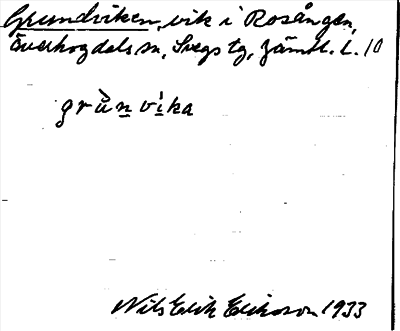 Grundviken, vik i Rosången,
Överhogdals sn, Svegs tg, Jämtl. l. 10
grùn vìka
Nils Erik Eliasson 1933